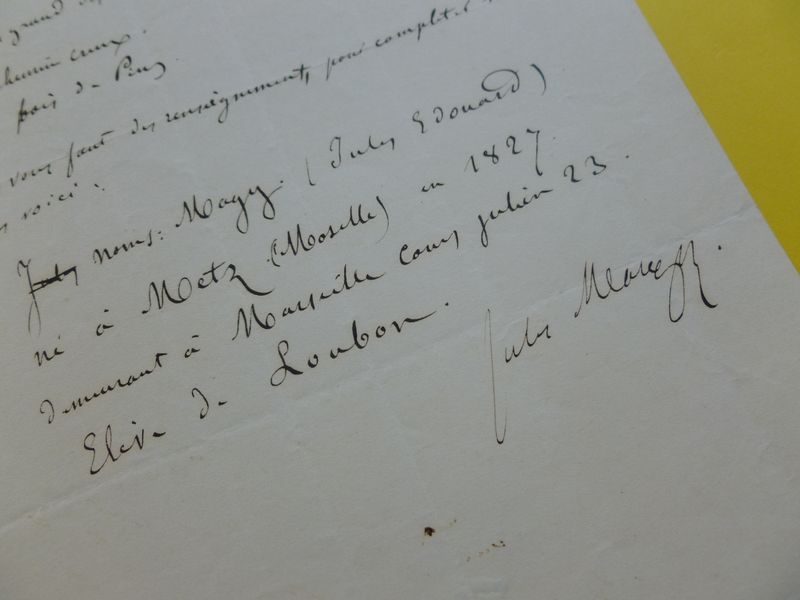 grand
chemin creux.
bois de Pins
vous faut des renseignements pour compléter
voici :
Jules noms: Magy. (Jules Edouard)
né à Metz (Moselle) en 1827.
demeurant à Marseille Cours julien 23.
Elève de Loubon.
Jules Magy.